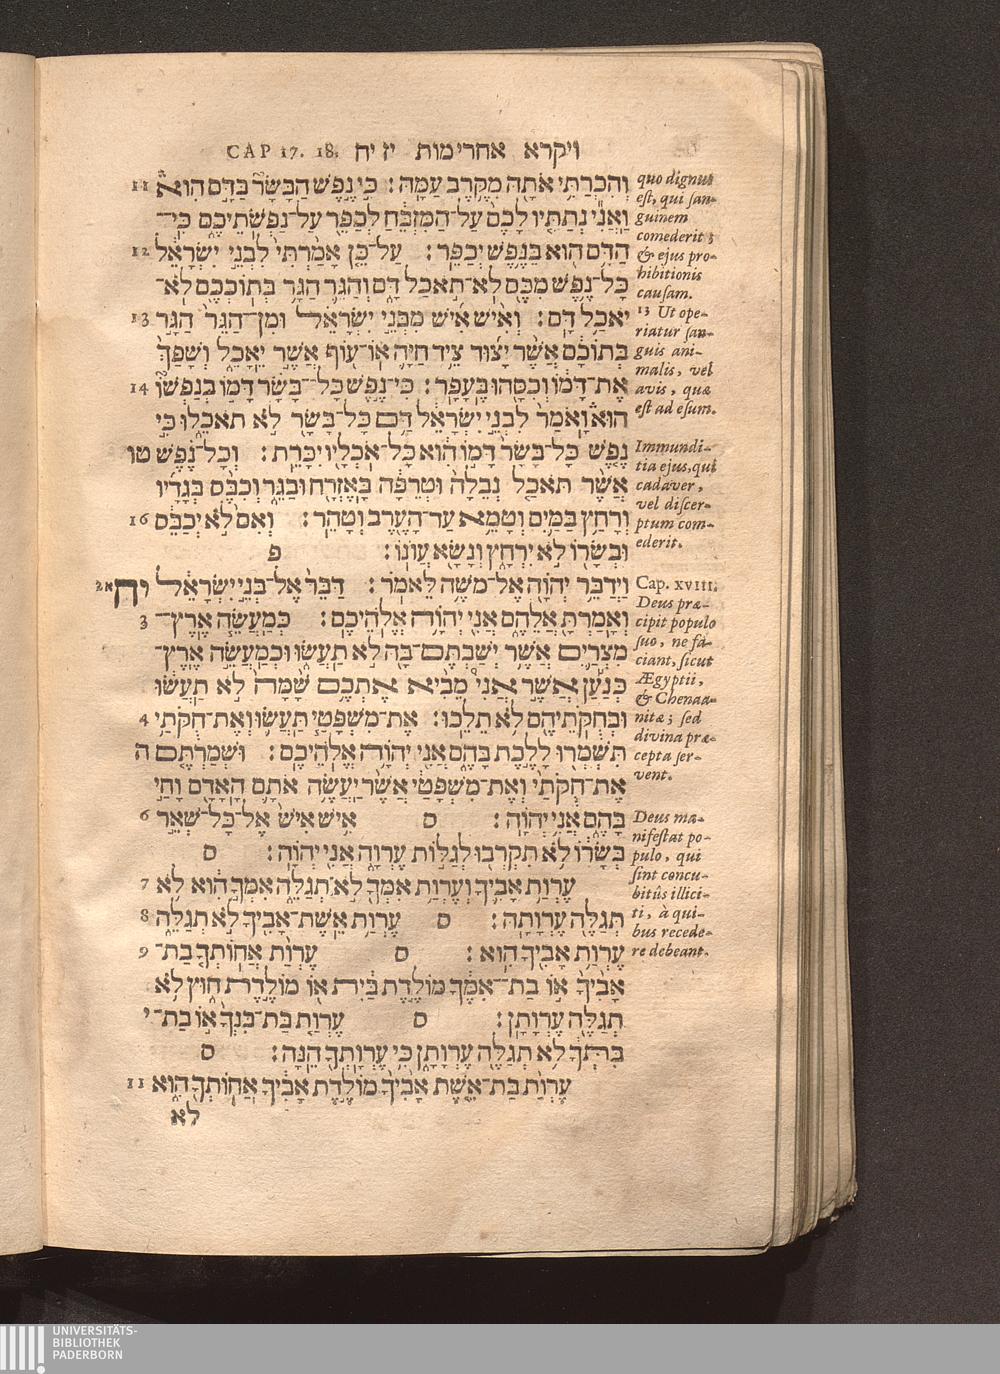 ויקרא אחרימות יז יח CAP 17. 18.
וְהִכְרַתִּי אֹתָהּ מִקֶּרֶב עַמָּהּ׃ כִּי נֶפֶשׁ הַבָּשָׂר בַּדָּם הִוא 11
וַאֲנִי נְתַתִּיו לָכֶם עַל־הַמִּזְבֵּחַ לְכַפֵּר עַל־נַפְשֹׁתֵיכֶם כִּי־
הַדָּם הוּא בַּנֶּפֶשׁ יְכַפֵּר׃ עַל־כֵּן אָמַרְתִּי לִבְנֵי יִשְׂרָאֵל 12
כָּל־נֶפֶשׁ מִכֶּם לֹא־תֹאכַל דָּם וְהַגֵּר הַגָּר בְּתוֹכְכֶם לֹא־
יֹאכַל דָּם׃ וְאִישׁ אִישׁ מִבְּנֵי יִשְׂרָאֵל וּמִן־הַגֵּר הַגָּר 13
בְּתוֹכָם אֲשֶׁר יָצוּד צֵיד חַיָּה אוֹ־עוֹף אֲשֶׁר יֵאָכֵל וְשָׁפַךְ
אֶת־דָּמוֹ וְכִסָּהוּ בֶּעָפָר׃ כִּי־נֶפֶשׁ כָּל־בָּשָׂר דָּמוֹ בְנַפְשׁוֹ 14
הוּא וָאֹמַר לִבְנֵי יִשְׂרָאֵל דַּם כָּל־בָּשָׂר לֹא תֹאכֵלוּ כִּי
נֶפֶשׁ כָּל־בָּשָׂר דָּמוֹ הִוא כָּל־אֹכְלָיו יִכָּרֵת׃ וְכָל־נֶפֶשׁ טו
אֲשֶׁר תֹּאכַל נְבֵלָה וּטְרֵפָה בָּאֶזְרָח וּבַגֵּר וְכִבֶּס בְּגָדָיו
וְרָחַץ בַּמַּיִם וְטָמֵא עַד־הָעֶרֶב וְטָהֵר׃ וְאִם לֹא יְכַבֵּס 16
וּבְשָׂרוֹ לֹא יִרְחָץ וְנָשָׂא עֲוֹנוֹ׃ פ
וַיְדַבֵּר יְהוָֹה אֶל־מֹשֶׁה לֵּאמֹר׃ דַּבֵּר אֶל־בְּנֵי יִשְׂרָאֵל יח א2
וְאָמַרְתָּ אֲלֵהֶם אֲנִי יְהוָֹה אֱלֹהֵיכֶם׃ כְּמַעֲשֵׂה אֶרֶץ־ 3
מִצְרַיִם אֲשֶׁר יְשַׁבְתֶּם־בָּהּ לֹא תַעֲשׂוּ וּכְמַעֲשֵׂה אֶרֶץ־
כְּנַעַן אֲשֶׁר אֲנִי מֵבִיא אֶתְכֶם שָׁמָּה לֹא תַעֲשׂוּ
וּבְחֻקֹּתֵיהֶם לֹא תֵלֵכוּ׃ אֶת־מִשְׁפָּטַי תַּעֲשׂוּ וְאֶת־חֻקֹּתַי 4
תִּשְׁמְרוּ לָלֶכֶת בָּהֶם אֲנִי יְהוָֹה אֱלֹהֵיכֶם׃ וּשְׁמַרְתֶּם ה
אֶת־חֻקֹּתַי וְאֶת־מִשְׁפָּטַי אֲשֶׁר יַעֲשֶׂה אֹתָם הָאָדָם וָחַי
בָּהֶם אֲנִי יְהוָֹה׃ ס אִישׁ אִישׁ אֶל־כָּל־שְׁאֵר 6
בְּשָׂרוֹ לֹא תִקְרְבוּ לְגַלּוֹת עֶרְוָה אֲנִי יְהוָֹה׃ ס
עֶרְוַת אָבִיךָ וְעֶרְוַת אִמְּךָ לֹא תְגַלֵּה אִמְּךָ הִוא לֹא 7
תְגַלֶּה עֶרְוָתָהּ׃ ס עֶרְוַת אֵשֶׁת־אָבִיךָ לֹא תְגַלֵּה 8
עֶרְוַת אָבִיךָ הִוא׃ ס עֶרְוַת אֲחוֹתְךָ בַת־ 9
אָבִיךָ אוֹ בַת־אִמֶּךָ מוֹלֶדֶת בַּיִת אוֹ מוֹלֶדֶת חוּץ לֹא
תְגַלֶּה עֶרְוָתָן׃ ס עֶרְוַת בַּת־בִּנְךָ אוֹ בַת־ י
בִּתְּךָ לֹא תְגַלֶּה עֶרְוָתָן כִּי עֶרְוָתְךָ הֵנָּה׃ ס
עֶרְוַת בַּת־אֵשֶׁת אָבִיךָ מוֹלֶדֶת אָבִיךָ אֲחוֹתְךָ הִוא 11
לֹא
quo dignus
est, qui san-
guinem
comederit;
& ejus pro-
hibitionis
causam.
13 Ut ope-
riatur san-
guis ani-
malis, vel
avis, quæ
est ad esum.
Immundi-
tia ejus, qui
cadaver,
vel discer-
ptum com-
ederit.
Cap. XVIII.
Deus præ-
cipit populo
suo, ne fa-
ciant, sicut
Ægyptii,
& Chenaa-
nitæ; sed
divina præ-
cepta ser-
vent.
Deus ma-
nifestat po-
pulo, qui
sint concu-
bitûs illici-
ti, à qui-
bus recede-
re debeant.
UNIVERSITÄTS-
BIBLIOTHEK
PADERBORN